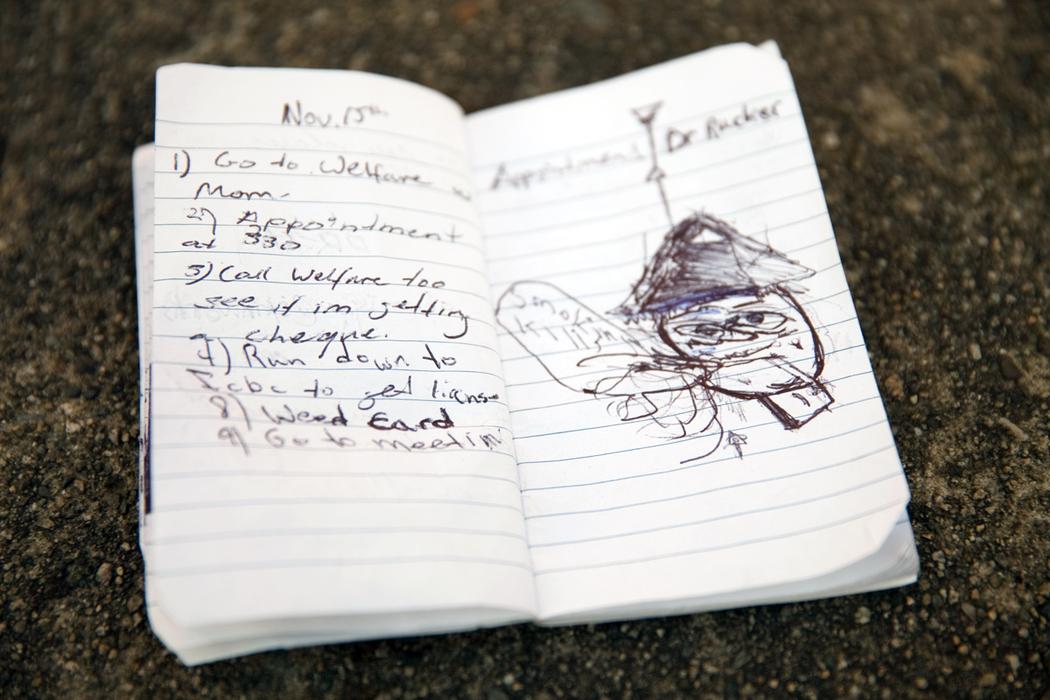 Nov. 15th
1) Go to Welfare w
Mom-
2) Appointment
at 330
3) Call Welfare too
see if im getting
a cheque.
4) Run down to
Icbc to get license
8) Weed Card
9) Go to meetin
Appointment Dr Rucker
Son
of